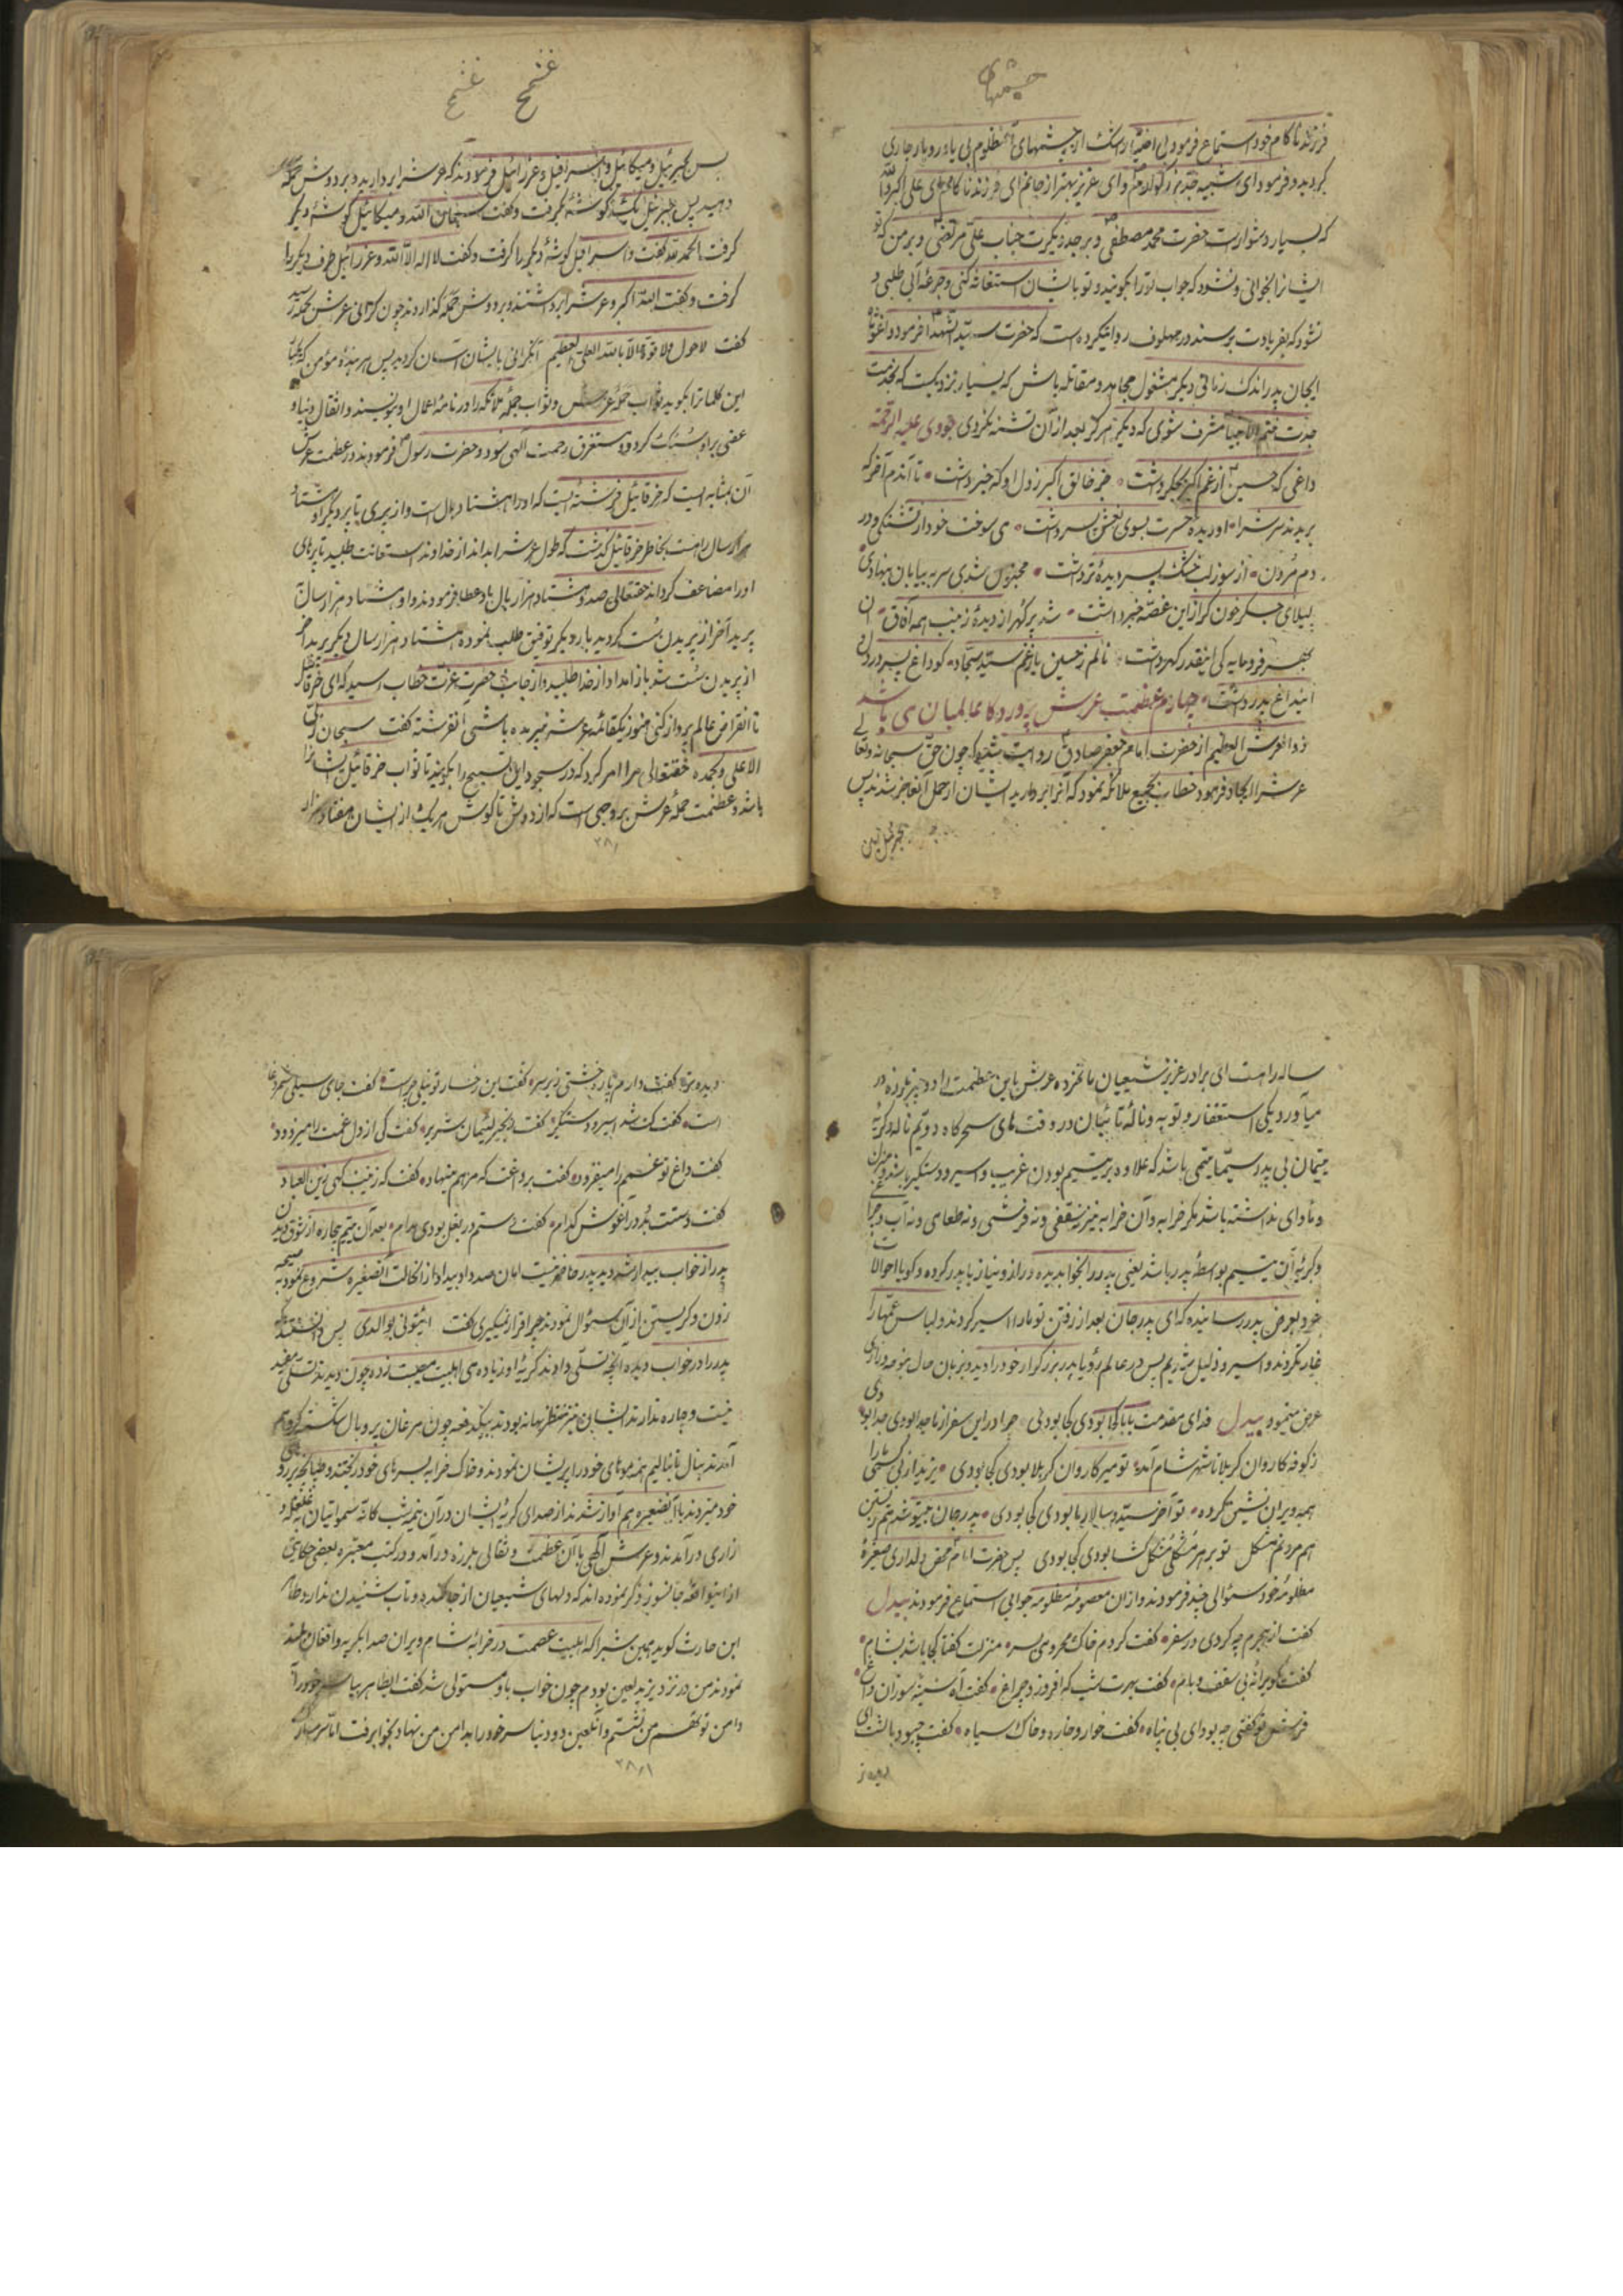 چشمهای
فرزند ناکام خود استماع فرمود بی اختیار اشک از چشمهای آن مظلوم بی یاور رودبار جاری
گردید و فرمود ای شبیه جد بزرگوارم و ای عزیز بهتر از جانم ای فرزند ناکام ای علی اکبر والله
که بسیار دشوارست حضرت محمد مصطفی و بر جد دیگرت جناب علی مرتضی و بر من که تو
ایشانرا بخوانی و نشود که جواب تو را بگویند و تو بایشان استغاثه کنی و جرعه آبی طلبی و
نشود که بفریادت برسند در ملهوف روایتکرده است که حضرت سید الشهدا فرمود واغوثاه
ایجان پدر اندک زمانی دیگر مشغول مجاهد و مقاتله باش که بسیار نزدیکست که بخدمت
جدت ختم الانبیا مشرف شوی که دیگر هرگز بعد از آن تشنه نگردی جودی علیه الرحمه
داغی که حسین از غم اکبر بجگر داشت جز خالق اکبر ز دل او که خبر داشت تا آندم آخر که
بریدند سرشرا او دیده حسرت بسوی نعش پسر داشت می سوخت خود از تشنگی و در
دم مردن از سوز لب خشک پسر دیده تر داشت مجنون شدی سر به بیابان بنهادی
لیلای جگر خون گر ازین غصه خبر داشت شد پر گهر از دیده زینب همه آفاق آن
بحر فرومایه کی اینقدر گهر داشت نالم ز حسین یا ز غم سید سجاد کو داغ پسر در دل
این داغ پدر داشت چهارم عظمت عرش پروردگار عالمیان می باشد
ذو العرش العظیم از حضرت امام جعفر صادق روایت شده که چون حق سبحانه و تعالی
عرشرا ایجاد فرمود خطاب بجمیع ملائکه نمود که آنرا بردارید ایشان از حمل آن عاجز شدند پس
پس جبرئیل و میکائیل و اسرافیل و عزرائیل فرمودند که عرشرا بردارید و بر دوش حمله
دهید پس جبرئیل یک گوشه گرفت و گفت سبحان الله و میکائیل گوشه دیگر
گرفت الحمد لله گفت و اسرافیل گوشه دیگر را گرفت و گفت لا اله الا الله و عزرائیل طرف دیگر را
گرفت و گفت الله اکبر و عرشرا برداشتند و بر دوش حمله گذاردند چون گرانی عرش بحمله رسید
گفت لا حول ولا قوة الا بالله العلی العظیم آنگرانی بایشان آسان گردید پس هر بنده مؤمن که
این کلماترا بگوید ثواب حمله عرش و ثواب جمله ملائکه را در نامه اعمال او بنویسند و اثقال دنیا و
عقبی بر او سبک گردد و مستغرق رحمت الهی شود و حضرت رسول فرمودند در عظمت عرش
آن بمثابه ایست که خرقائیل فرشته ایست که او را هشتاد بال است و از پری تا پر دیگر او هشتاد
هزار سال راهست بخاطر خرقائیل گذشت که طول عرشرا بداند از خداوند استعانت طلبید تا پرهای
او را مضاعف گرداند حقتعالی صد و هشتاد هزار بال باو عطا فرمودند و او هشتاد هزار سال
پرید آخر از پریدن سست گردید بار دیگر توفیق طلب نموده هشتاد هزار سال دیگر پرید آخر
از پریدن سست شد باز امداد از خدا طلبید و از جانب حضرت عزت خطاب رسید که ای خرقائیل
تا انقراض عالم پرواز کنی هنوز بیکقائمه عرش نرسیده باشی آنفرشته گفت سبحان ربی
الاعلی و بحمده حقتعالی مرا امر کرد که در سجود این تسبیح را بگویند تا ثواب خرقائیل ایشانرا
باشد و عظمت حمله عرش بروجهی است که از دوش تا گوش هر یک از ایشان هفتاد هزار
ساله راهست ای برادر عزیز شیعیان ماتمزده عرش باین عظمت را دو چیز بلرزه در
میآورد یکی استغفار و توبه و ناله تائبان در وقت های سحرگاه دویم ناله و گریه
یتیمان بی پدر سیما یتیمی باشد که علاوه بر یتیم بودن غریب و اسیر و دستگیر باشد و منزل
و ماوای نداشته باشد مگر خرابه و آن خرابه نیز نه سقفی و نه فرشی و نه طعامی و نه آب و چراغی
و گریه آن یتیم بواسطه پدر باشد یعنی پدر را بخواب دیده و راز و نیاز با پدر کرده و گویا احوالات
خود بعرض پدر رسانیده که ای پدر جان بعد از رفتن تو ما را اسیر کردند و لباس عمه ها را
غارت کردند و اسیر و ذلیل شدیم پس در عالم رؤیا پدر بزرگوار خود را دید و بزبان حال نوحه و زاری
عرض مینمود بیدل فدای مقدمت بابا کجا بودی کجا بودی چرا در این سفر از ما جدا بودی جدا بودی
ز کوفه کاروان کربلا تا شهر شام آمد تو میر کاروان کربلا بودی کجا بودی یزید از بی کسی ما را
همه ویران نشین کرده تو آخر سید و سالار ما بودی کجا بودی پدر جان
هم مردنم مشکل تو بر هر مشکلی مشکل گشا بودی کجا بودی پس حضرت امام محض دلداری صغیره
مظلومه خود سئوالی چند فرمودند و از آن معصومه مظلومه جوابی استماع فرمودند بیدل
گفت از هجرم چه کردی در سفر گفت کردم خاک محرومی بسر منزلت گفتا کجا باشد بشام
گفت ویرانه بی سقف و بام گفت بهرت شب که افروزد چراغ گفت آه سینه سوزان داغ
فرش تو گفتی چه بود ای بی پناه گفت خوار و خاره و خاک سیاه گفت چبود بالشت ای
دیده تر گفت دارم پاره خشتی زیر سر گفت این رخسار تو نیلی چراست گفت جای سیلی شمر دغا
است گفت کت شد اسیر و دستگیر گفت زنجیر لئیمان شریر گفت کی از دل غمت را میزدود
گفت داغ تو غمم را میفزود گفت بر داغت که مرهم مینهاد گفت که زینب گهی زین العباد
گفت دستت بد در آغوش کدام گفت بی سترم در بغل بودی مدام بعد آن یتیم بیچاره از شوق دیدن
پدر از خواب بیدار شد دید پدر حاضر نیست امان صد داد و بیداد از انحالت آنصغیره شروع نمود به صیحه
زدن و گریستن از آن سئوال نمودند چرا قرار نمیگیری گفت ایتونی بوالدی پس دانستند که
پدر را در خواب دیده آنچه تسلی دادند گریه او زیاده می اهلبیت مصیبت زده چون دیدند تسلی مفید
نیست و چاره ندارند ایشان نیز منتظر بهانه بودند بیکدفعه چون مرغان پر و بال شکسته گرد هم
آمدند بنال تا بنالیم همه موهای خود را پریشان نمودند و خاک خرابه بسرهای خود ریختند و طپانچه بر روی
خود میزدند با آنصغیره هم آواز شدند از صدای گریه ایشان در آن نیمه شب کافه سمواتیان به غلغله و
زاری درآمدند و عرش الهی با آن عظمت و ثقالی بلرزه درآمد و در کتب معتبره بعضی حکایتی
از اینواقعه جانسوز ذکر نموده اند که دلهای شیعیان از جا کنده و تاب شنیدن ندارد طاهر
ابن حارث گوید همین شبرا که اهلبیت عصمت در خرابه شام ویران صدا بگریه و افغان بلند
نمودند من در نزد یزید لعین بودم چون خواب باو مستولی شد گفت ایطاهر بیا سر خود را
دامن تو نهم من نشستم و آنلعین دو دنیا سر خود را بدامن من نهاد بخواب رفت اما سر مبارک